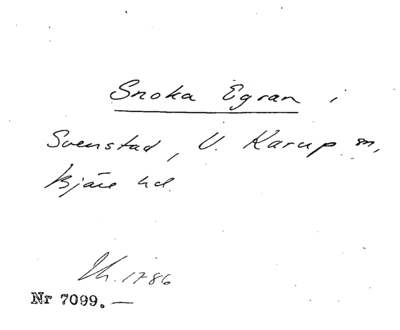 Snoka Egran i
Svenstad, V. Karup sn,
Bjäre hd.
Lh. 1786
Nr 7099.—